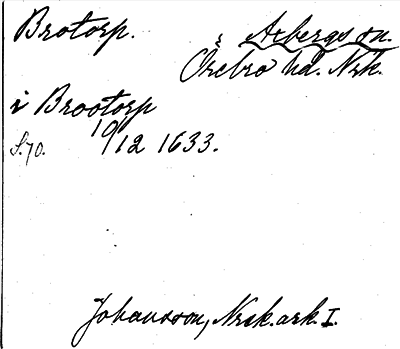 Brotorp. Axbergs sn.
Örebro hd. Nrk.
i Brootorp
S. 70. 19/12 1633.
Johansson, Nrsk. ark. I.